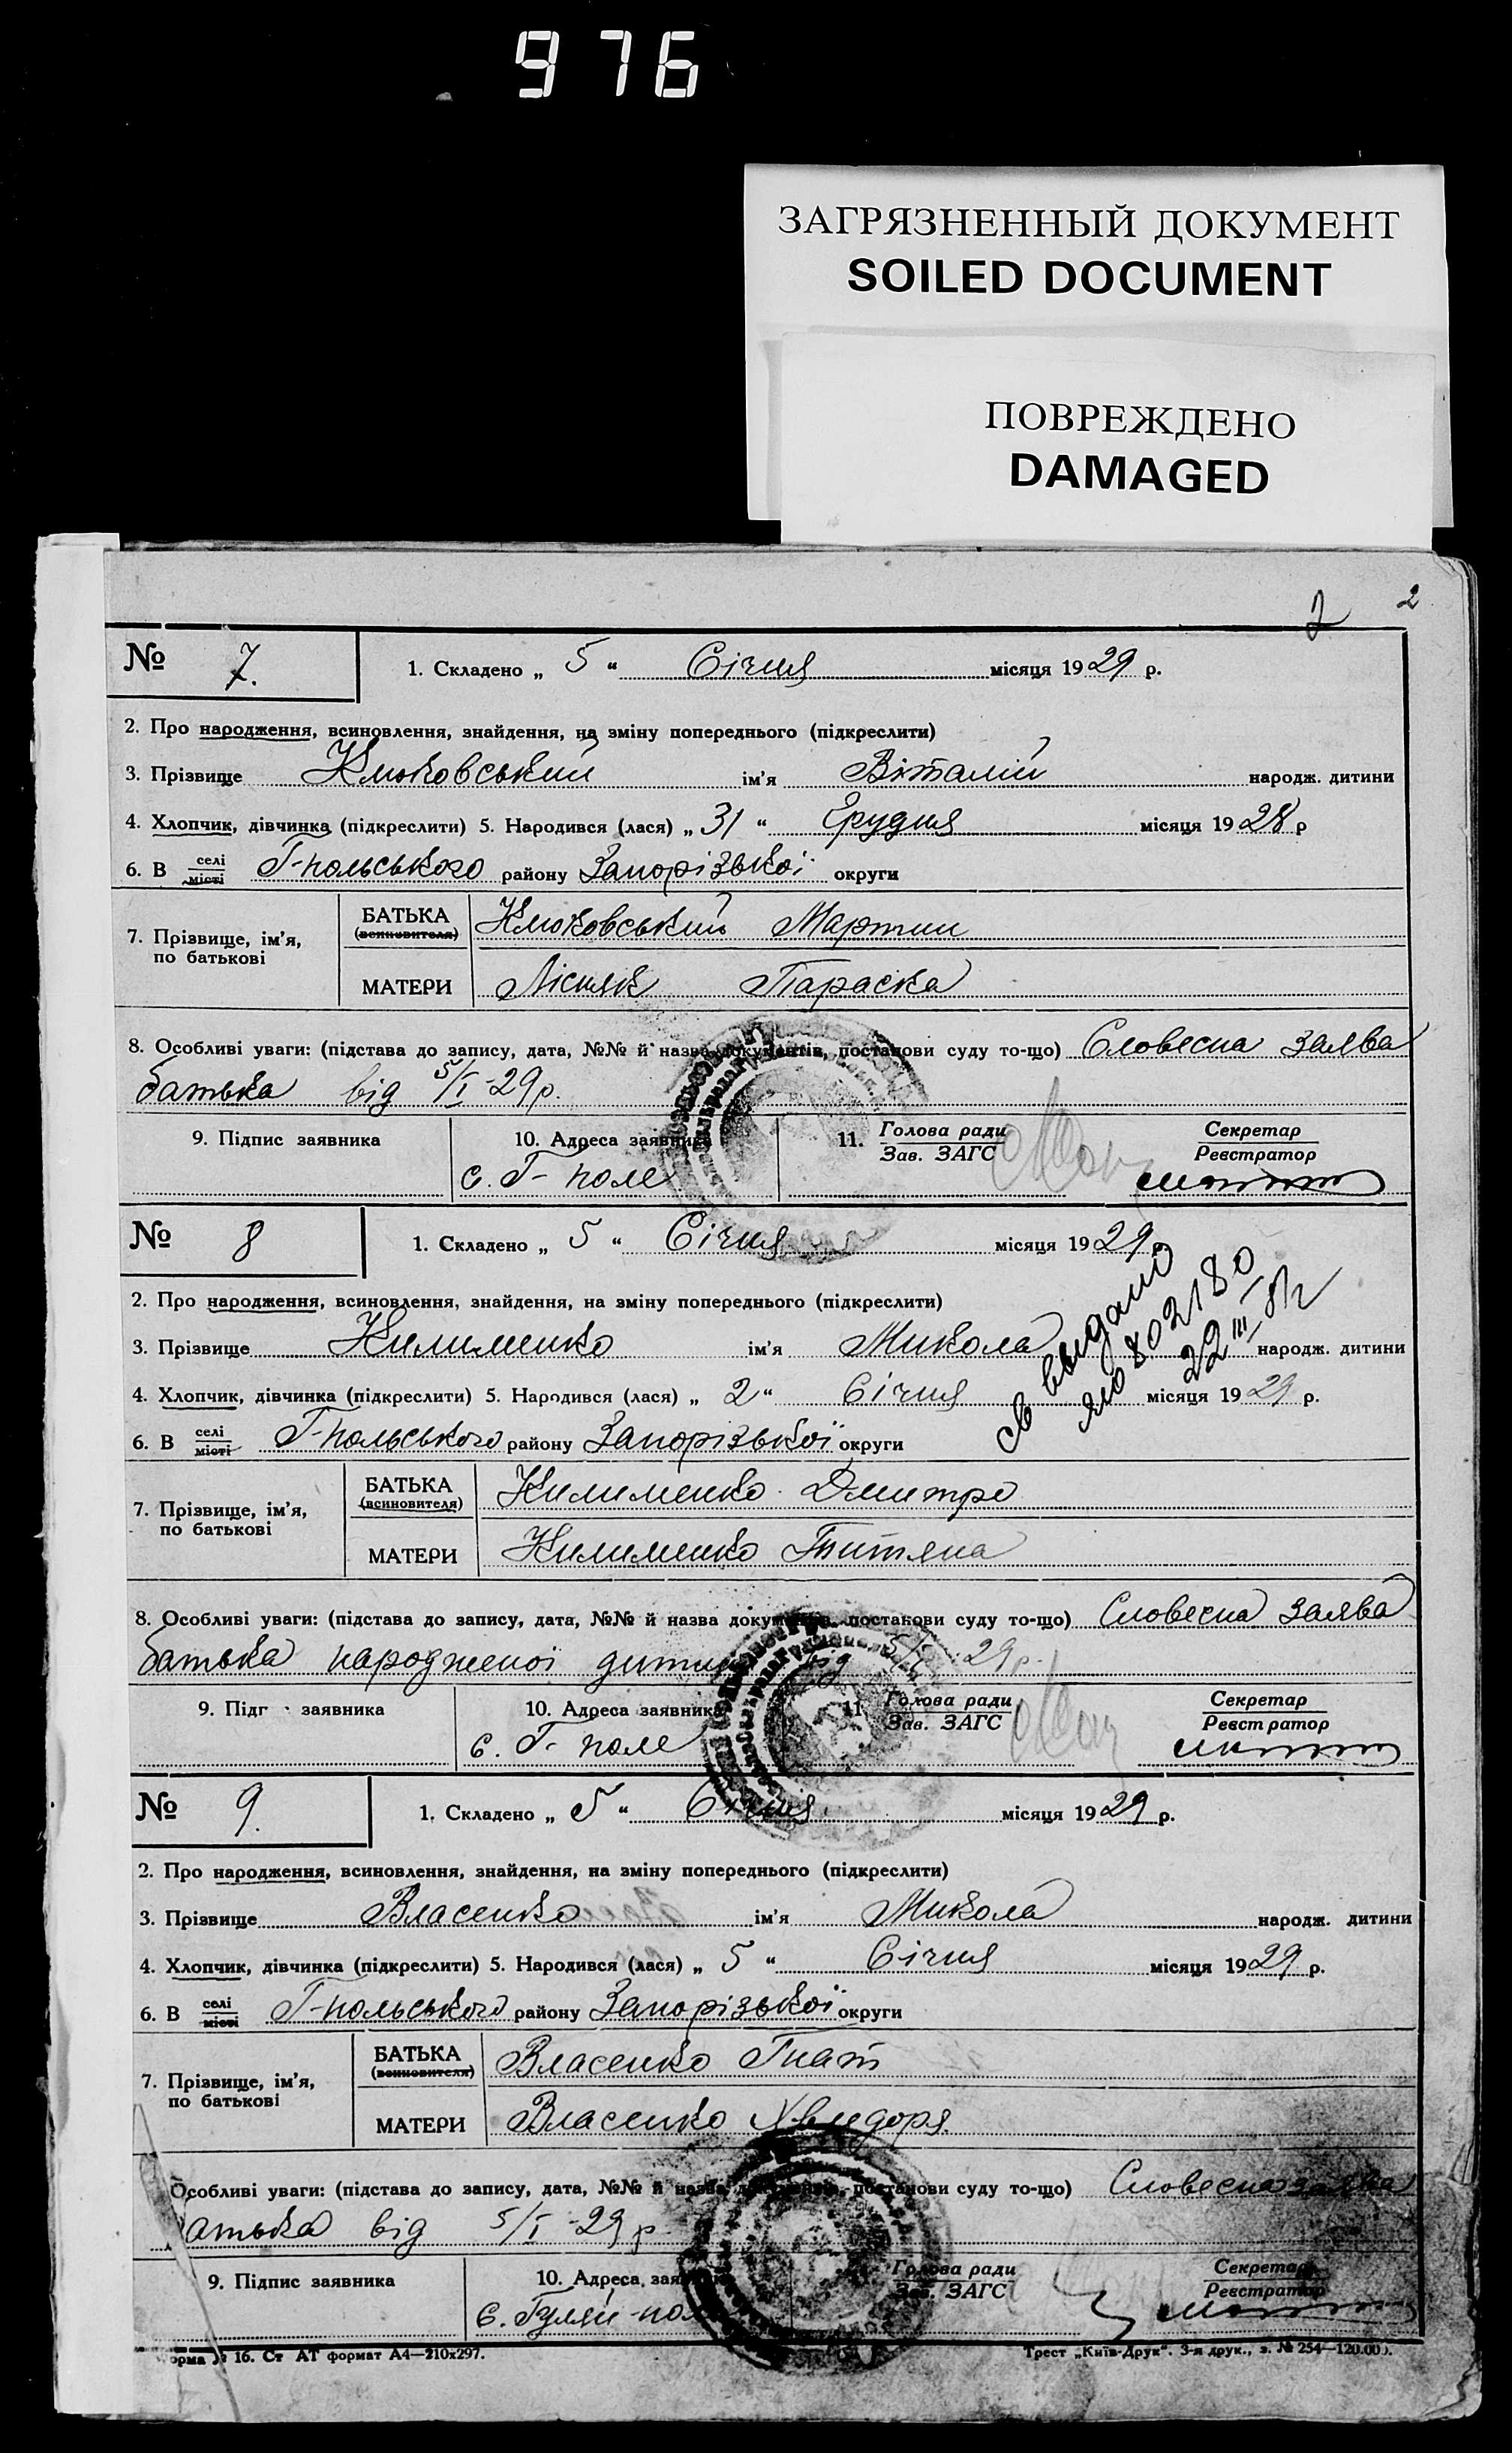 976
ЗАГРЯЗНЕННЫЙ ДОКУМЕНТ
SOILED DOCUMENT
ПОВРЕЖДЕНО
DAMAGED
2 2
№ 7. 1. Складено „ 5 “ Січня місяця 1929 р.
2. Про народження, всиновлення, знайдення, на зміну попереднього (підкреслити)
3. Прізвище Клюковський ім'я Віталій народж. дитини
4. Хлопчик, дівчинка (підкреслити) 5. Народився (лася) „ 31 “ Грудня місяця 1928 р
6. В селі місті Г-польського району Запорізької округи
7. Прізвище, ім'я, по батькові БАТЬКА (всиновителя) Клюковський Мартин
МАТЕРИ Лісняк Параска
8. Особливі уваги: (підстава до запису, дата, №№ й назва документів, постанови суду то-що) Словесна заява
батька від 5/I-29р.
9. Підпис заявника 10. Адреса заявника 11. Голова ради Зав. ЗАГС Секретар Реєстратор
с. Г-поле
№ 8 1. Складено „ 5 “ Січня місяця 1929 р.
2. Про народження, всиновлення, знайдення, на зміну попереднього (підкреслити)
3. Прізвище Килименко ім'я Микола народж. дитини
4. Хлопчик, дівчинка (підкреслити) 5. Народився (лася) „ 2 “ Січня місяця 1929 р.
св выдано
802180
22 III
6. В селі місті Г-польського району Запорізької округи
7. Прізвище, ім'я, по батькові БАТЬКА (всиновителя) Килименко Дмитро
МАТЕРИ Килименко Титяна
8. Особливі уваги: (підстава до запису, дата, №№ й назва документів, постанови суду то-що) Словесна заява
батька народженої дитини від 5/I-29р.
9. Підп заявника 10. Адреса заявника 11. Голова ради Зав. ЗАГС Секретар Реєстратор
с. Г-поле
№ 9. 1. Складено „ 5 “ Січня місяця 1929 р.
2. Про народження, всиновлення, знайдення, на зміну попереднього (підкреслити)
3. Прізвище Власенко ім'я Микола народж. дитини
4. Хлопчик, дівчинка (підкреслити) 5. Народився (лася) „ 5 “ Січня місяця 1929 р.
6. В селі місті Г-польського району Запорізької округи
7. Прізвище, ім'я, по батькові БАТЬКА (всиновителя) Власенко Гнат
МАТЕРИ Власенко Хвидоря.
Особливі уваги: (підстава до запису, дата, №№ й назва документів, постанови суду то-що) Словесна заява
батька від 5/I-29 р.
9. Підпис заявника 10. Адреса заявника Голова ради Зав. ЗАГС Секретар Реєстратор
с. Гуляй-поле
орма № 16. Ст АТ формат А4—210х297. Трест „Київ-Друк“. 3-я друк., з. № 254—120.000.